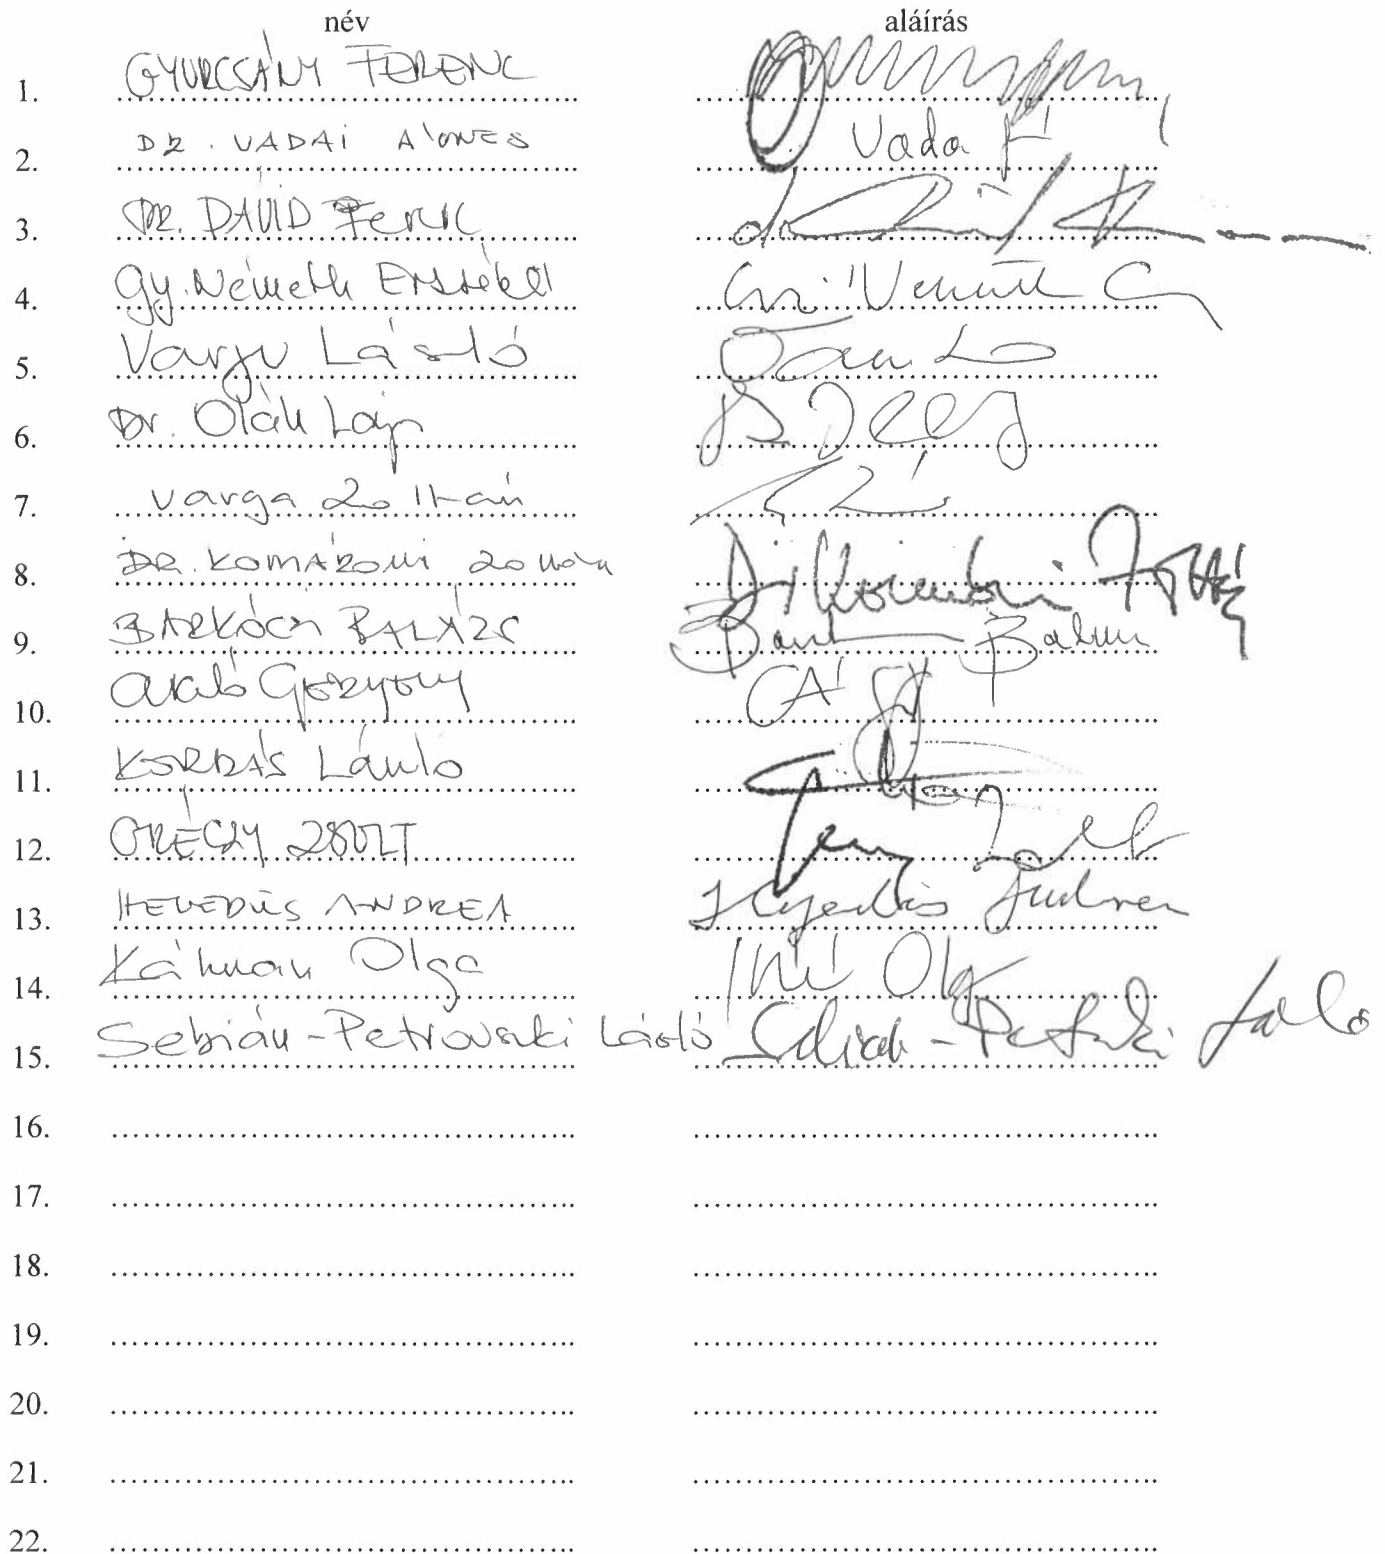 név aláírás
1. GYURCSÁNY FERENC
2. DR. VADAI ÁGNES Vadai Á
3. DR. DÁVID Ferenc
4. Gy. Németh Erzsébet Gy. Németh E
5. Varju László
6. Dr. Oláh Lajos
7. Varga Zoltán
8. DR. KOMÁROMI Zoltán Dr Komáromi Zoltán
9. BARKÓCZI BALÁZS Bark Balázs
10. Arató GERGELY
11. KORDÁS László
12. GRÉCZY ZSOLT Zsolt
13. HEGEDŰS ANDREA Hegedűs Andrea
14. Kálmán Olga Olga
15. Sebián-Petrovszki László Sebián-Petrovszki László
16.
17.
18.
19.
20.
21.
22.